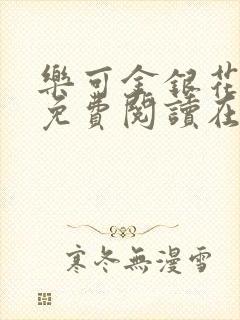 樂可金銀花
免費閱讀在
寒冬無漫雪